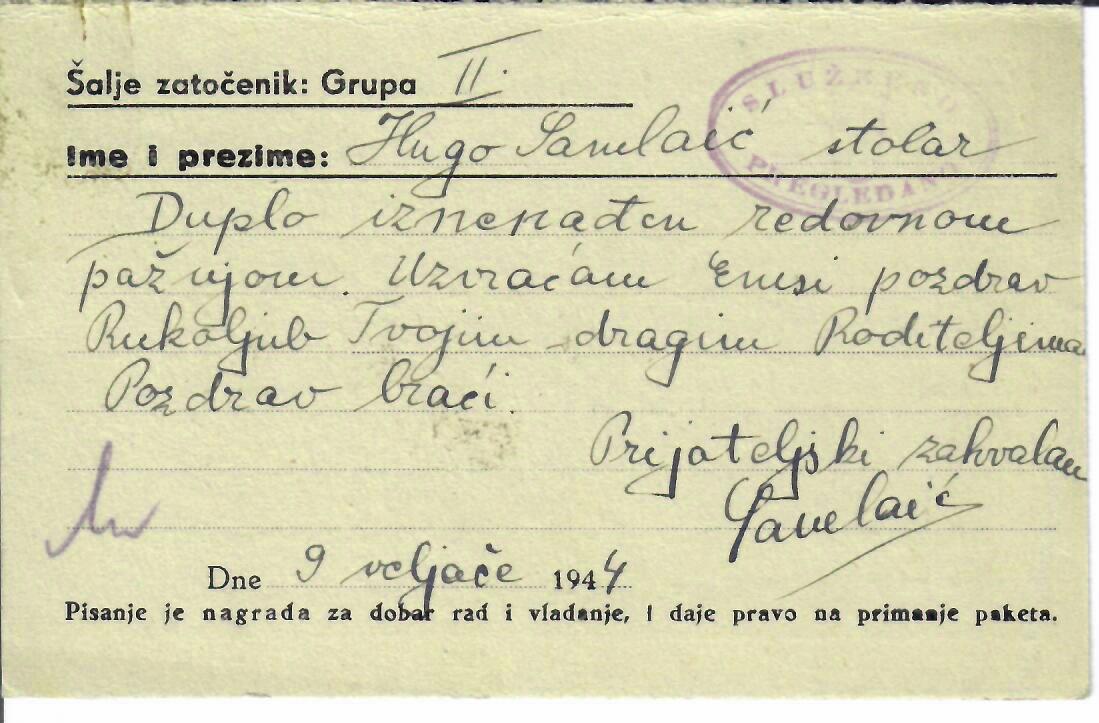 Šalje zatočenik: Grupa II.
SLUŽBENO
PREGLEDANO
Ime i prezime: Hugo Samlaić stolar
Duplo iznenađen redovnom
pažnjom. Uzvraćam Emsi pozdrav
Rukoljub Tvojim dragim Roditeljima
Pozdrav braći.
Prijateljski zahvalan
Samlaić
Dne 9 veljače 1944
Pisanje je nagrada za dobar rad i vladanje, i daje pravo na primanje paketa.